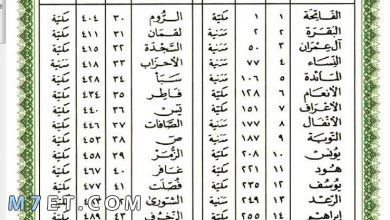 الفَاتِحَة ١ ١ مكيّة الرُّوم ٣٠ ٤٠٤ مكيّة
البَقَرَة ٢ ٢ مَدَنيّة لقمَان ٣١ ٤١١ مكيّة
آل عِمرَان ٣ ٥٠ مَدَنيّة السَّجْدَة ٣٢ ٤١٥ مكيّة
النِّسَاء ٤ ٧٧ مَدَنيّة الأحزَاب ٣٣ ٤١٨ مَدَنيّة
المَائدة ٥ ١٠٦ مَدَنيّة سَبَأ ٣٤ ٤٢٨ مكيّة
الأنعَام ٦ ١٢٨ مكيّة فَاطِر ٣٥ ٤٣٤ مكيّة
الأعرَاف ٧ ١٥١ مكيّة يسٓ ٣٦ ٤٤٠ مكيّة
الأنفَال ٨ ١٧٧ مَدَنيّة الصَّافات ٣٧ ٤٤٦ مكيّة
التّوبَة ٩ ١٨٧ مَدَنيّة صٓ ٣٨ ٤٥٣ مكيّة
يُونس ١٠ ٢٠٨ مكيّة الزُّمَر ٣٩ ٤٥٨ مكيّة
هُود ١١ ٢٢١ مكيّة غَافر ٤٠ ٤٦٧ مكيّة
يُوسُف ١٢ ٢٣٥ مكيّة فُصِّلَت ٤١ ٤٧٧ مكيّة
الرّعد ١٣ ٢٤٩ مَدَنيّة الشّورى ٤٢ ٤٨٣ مكيّة
إبراهيم ١٤ ٢٥٥ مكيّة الزّخرُف ٤٣ ٤٨٩ مكيّة
M7ET.COM